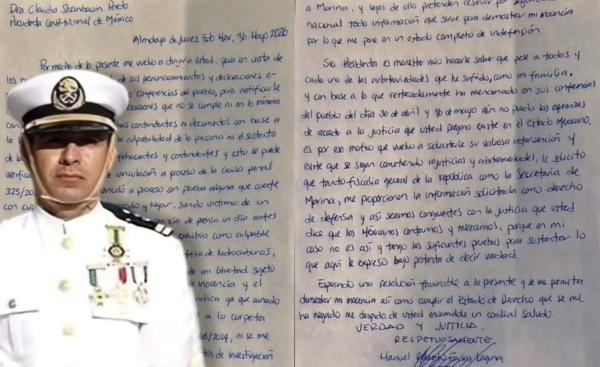 Dra Claudia Sheinbaum Pardo
Presidenta Constitucional de México
Almoloya de Juárez Edo Méx, 30 Mayo 2026
Por medio de la presente me vuelvo a dirigir a Usted, para en vista de
los de sus pronunciamientos y declaraciones e-
conferencias del pueblo, para notificarle
que no se cumple ni en lo mínimo
contundentes ni documentos con base a
la culpabilidad de la persona ni el sustento
fehacientes y contundentes y esto se puede
verific vinculación a proceso de la causa penal
325/20 vinculó a proceso sin prueba alguna que cuente
con cir y lugar, siendo víctima de un
de prensa un día antes
exhibió como culpable
de hidrocarburos,
de mi libertad sujeto
inocencia y el
indica ya que aunado
a la carpeta
/2024, ni se me
de investigación
a Marina, y lejos de ello pretenden reservar por seguridad
nacional toda información que sirve para demostrar mi inocencia
por lo que me pone en un estado completo de indefensión.
Sra Presidenta el manifestarlo hacerle saber que pese a todas y
cada una de las arbitrariedades que he sufrido, como mi familia,
y con base a lo que reiteradamente ha mencionado en sus conferencias
del pueblo del día 30 de abril y 30 de mayo aún no pierdo las esperanzas
de acceso a la justicia que usted pregona existe en el Estado Mexicano,
es por ese motivo que vuelvo a solicitarle su valiosa intervención y
evite que se sigan cometiendo injusticias y arbitrariedades, le solicito
que tanto fiscalía general de la república como la Secretaría de
Marina, me proporcionen la información solicitada como derecho
de defensa y así seamos conjuntos con la justicia que usted
dice que los Mexicanos contamos y merecemos, porque en mi
caso no es así y tengo las suficientes pruebas para sustentar lo
que aquí le expreso bajo protesta de decir verdad.
Esperando una resolución favorable a la presente y se me permita
demostrar mi inocencia así como cumplir el Estado de Derecho que se me
ha negado me despido de usted enviándole un cordial saludo.
VERDAD Y JUSTICIA.
RESPETUOSAMENTE
Manuel Roberto Farías Laguna